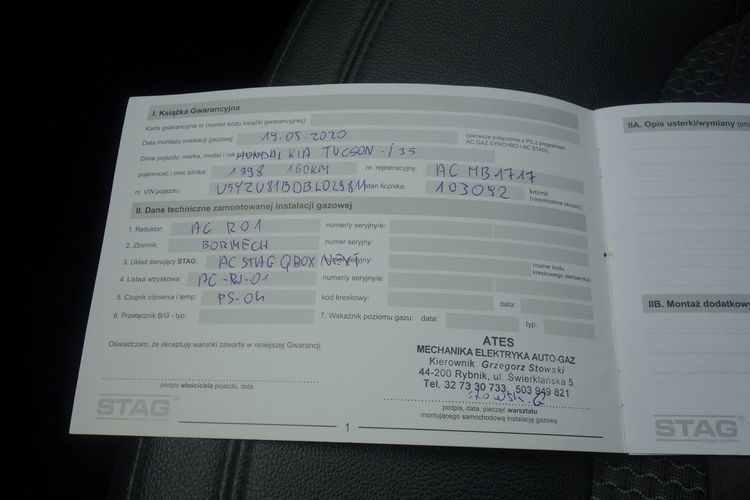 I. Książka Gwarancyjna
Karta gwarancyjna nr (numer kodu książki gwarancyjnej):
Data montażu instalacji gazowej: 19.05.2020 (pierwsze połączenie z PC z programem AC GAZ SYNCHRO / AC STAG)
Dane pojazdu: marka, model i rok KIA TUCSON - i35
pojemność i moc silnika: 1998 160KM nr. rejestracyjny: AC MB1717
nr. VIN pojazdu: stan licznika: 103092 km/mil (niepotrzebne skreślić)
II. Dane techniczne zamontowanej instalacji gazowej
1. Reduktor: AC R01 numer/y seryjny/e:
2. Zbiornik: BORMECH numer seryjny:
3. Układ sterujący STAG: AC STAG QBOX NEXT seryjny: (numer kodu kreskowego sterownika)
4. Listwa wtryskowa: numer/y seryjny/e:
5. Czujnik ciśnienia i temp: PS-04 kod kreskowy: data:
6. Przełącznik B/G - typ: 7. Wskaźnik poziomu gazu: data: typ:
Oświadczam, że akceptuję warunki zawarte w niniejszej Gwarancji
ATES
MECHANIKA ELEKTRYKA AUTO-GAZ
Kierownik Grzegorz Stowski
44-200 Rybnik, ul. Świerklańska 5
Tel. 32 73 30 733, 503 949 821
podpis właściciela pojazdu, data
podpis, data, pieczęć warsztatu
montującego samochodową instalację gazową
STAG
1
IIA. Opis usterki/wymiany
IIB. Montaż
STAG